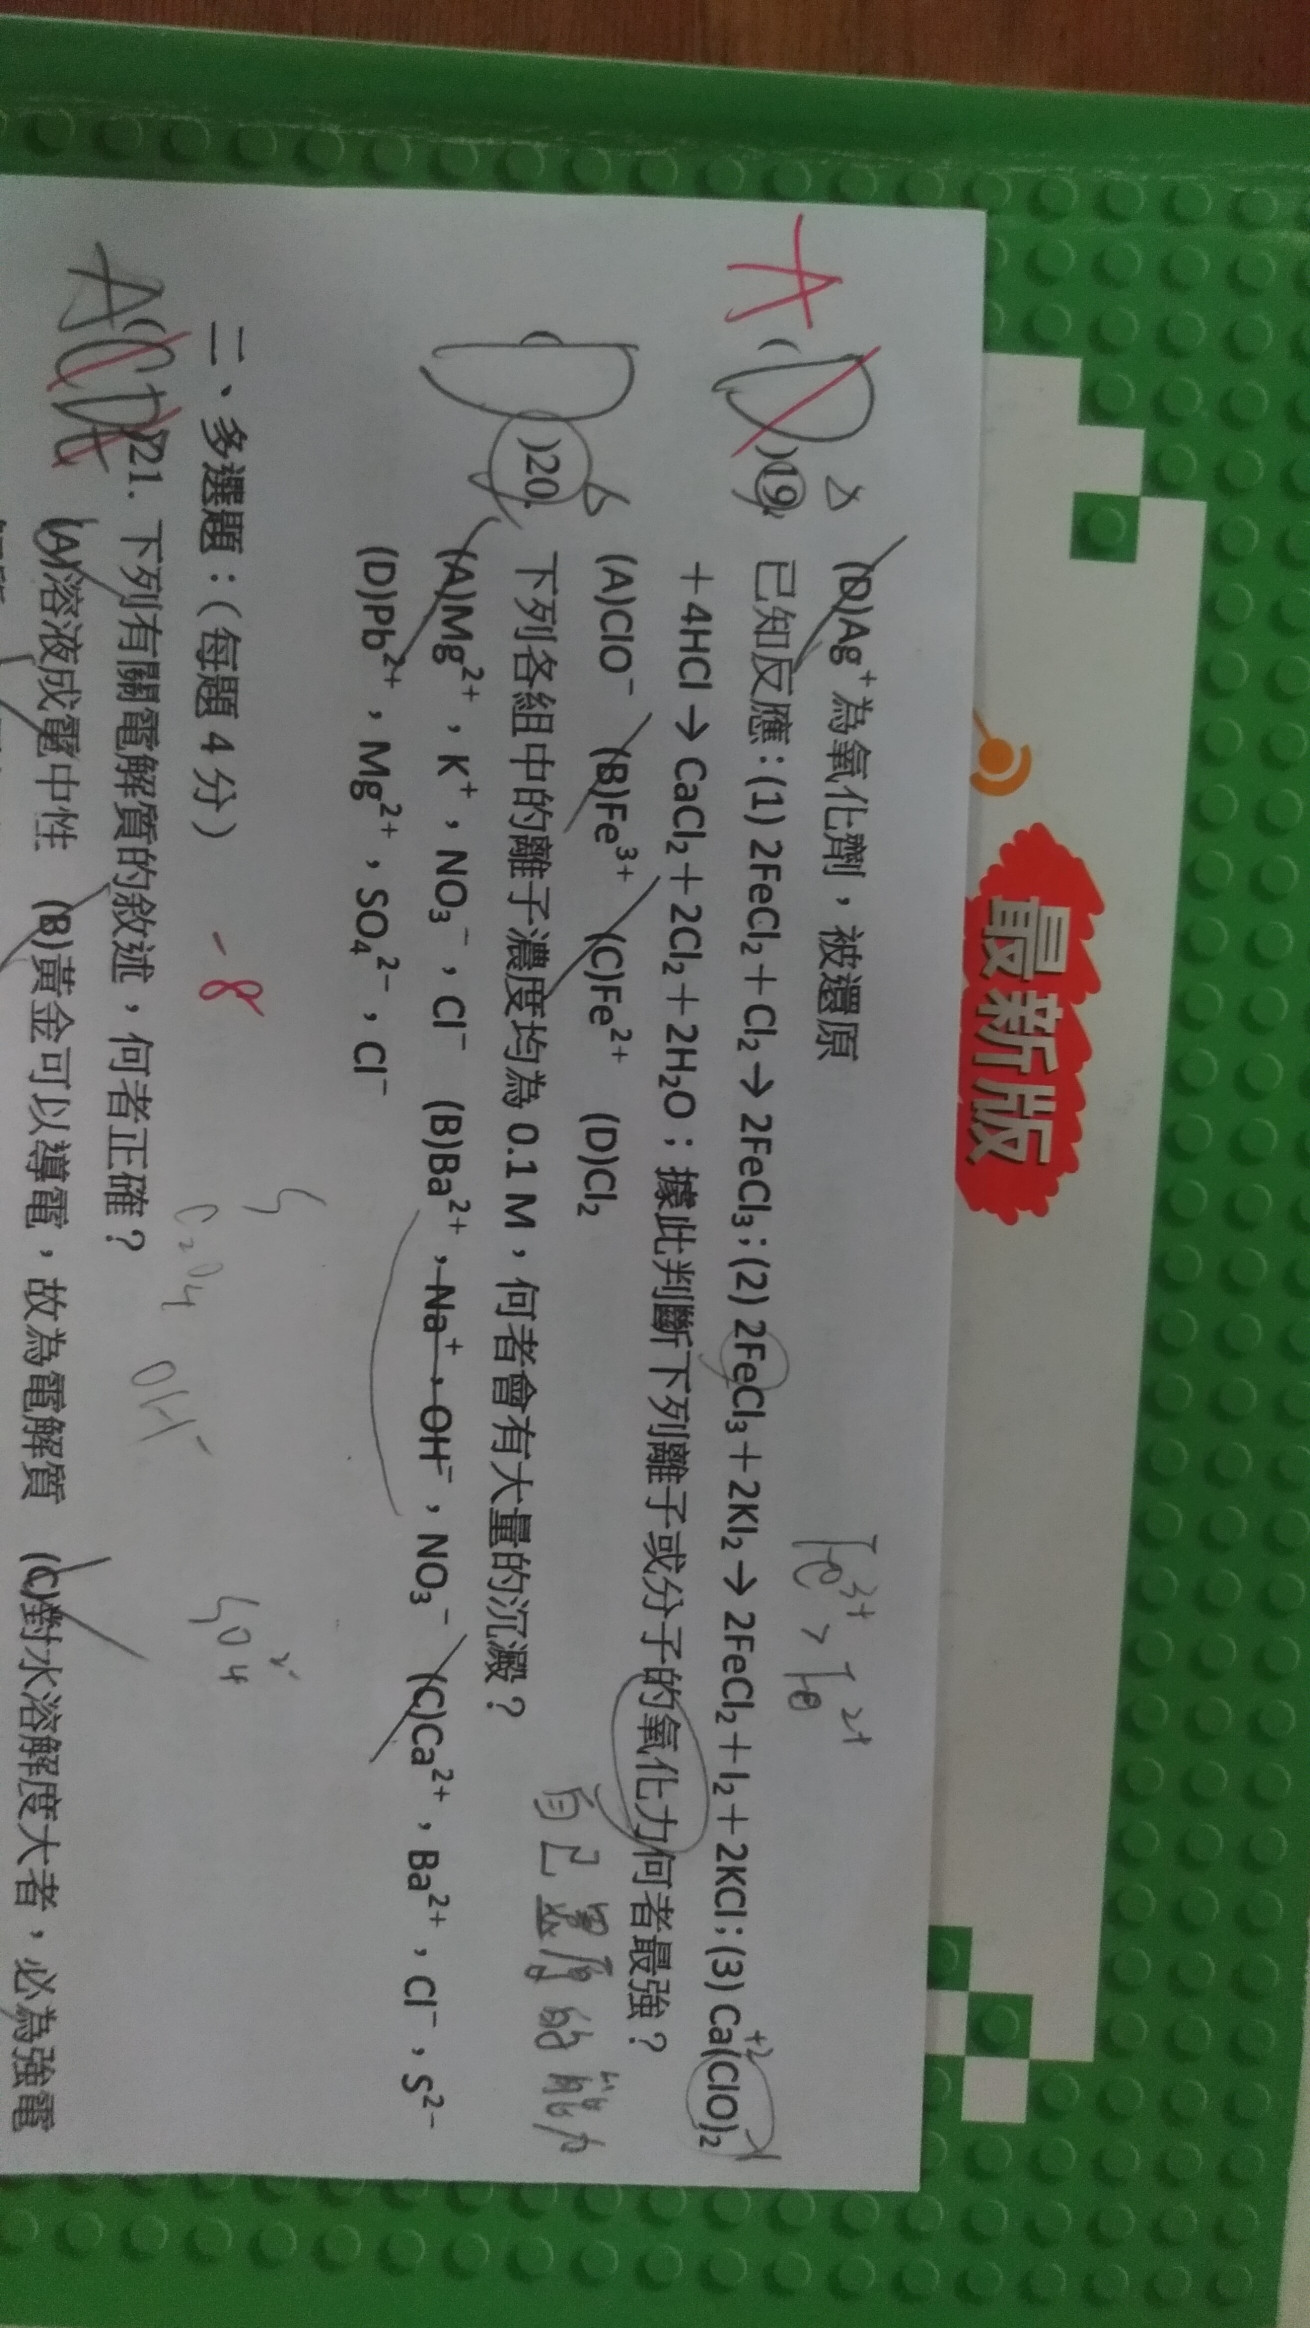 最新版
(D)Ag⁺為氧化劑，被還原
Fe³⁺ > Fe²⁺
A
(D)19. 已知反應：(1) 2FeCl₂＋Cl₂→2FeCl₃；(2) 2FeCl₃＋2KI₂→2FeCl₂＋I₂＋2KCl；(3) Ca(ClO)₂
+2
＋4HCl→CaCl₂＋2Cl₂＋2H₂O；據此判斷下列離子或分子的氧化力何者最強？
(A)ClO⁻ (B)Fe³⁺ (C)Fe²⁺ (D)Cl₂
自己還原的能力
(D)20. 下列各組中的離子濃度均為 0.1 M，何者會有大量的沉澱？
(A)Mg²⁺，K⁺，NO₃⁻，Cl⁻ (B)Ba²⁺，Na⁺，OH⁻，NO₃⁻ (C)Ca²⁺，Ba²⁺，Cl⁻，S²⁻
(D)Pb²⁺，Mg²⁺，SO₄²⁻，Cl⁻
二、多選題：（每題 4 分） -8
C₂O₄ OH⁻ SO₄²⁻
A(CD)21. 下列有關電解質的敘述，何者正確？
(A)溶液成電中性 (B)黃金可以導電，故為電解質 (C)對水溶解度大者，必為強電